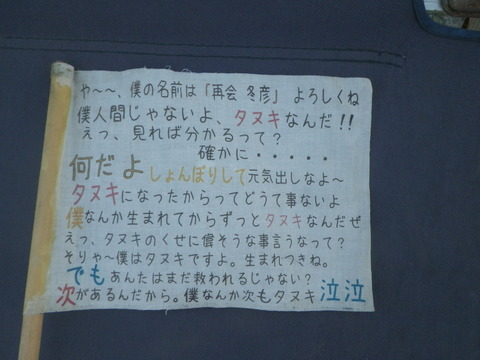 や〜〜、僕の名前は「再会 冬彦」 よろしくね
僕人間じゃないよ、タヌキなんだ!!
えっ、見れば分かるって?
確かに・・・・・
何だよ しょんぼりして元気出しなよ〜
タヌキになったからってどうて事ないよ
僕なんか生まれてからずっとタヌキなんだぜ
えっ、タヌキのくせに偉そうな事言うなって?
そりゃ〜僕はタヌキですよ。生まれつきね。
でもあんたはまだ救われるじゃない?
次があるんだから。僕なんか次もタヌキ 泣泣